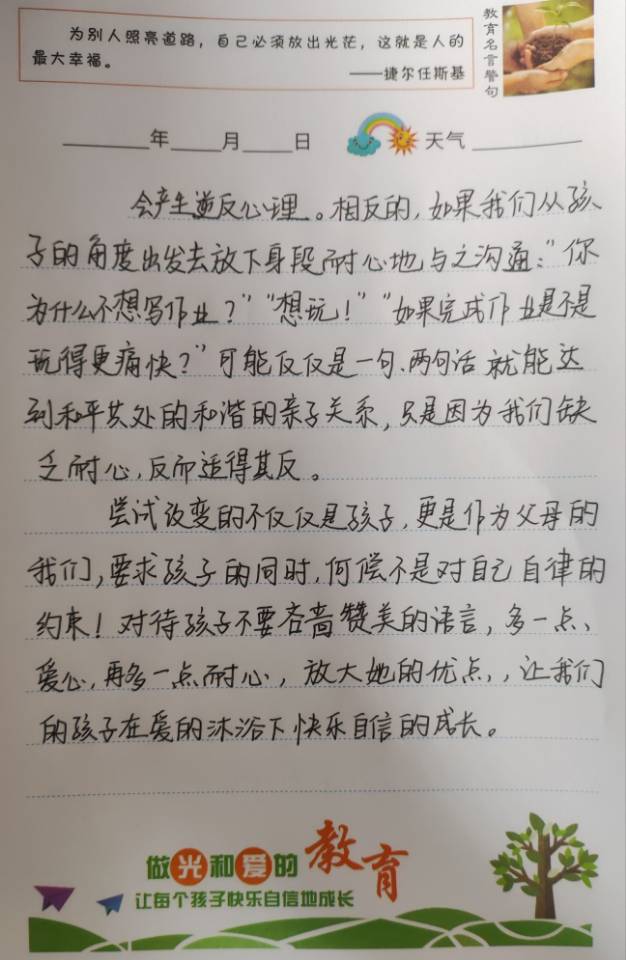 为别人照亮道路，自己必须放出光芒，这就是人的
最大幸福。
——捷尔任斯基
教育名言警句
年 月 日 天气
会产生逆反心理。相反的，如果我们从孩
子的角度出发去放下身段耐心地与之沟通：“你
为什么不想写作业？”“想玩！”“如果完成作业是不是
玩得更痛快？”可能仅仅是一句、两句话就能达
到和平共处的和谐的亲子关系，只是因为我们缺
乏耐心，反而适得其反。
尝试改变的不仅仅是孩子，更是作为父母的
我们，要求孩子的同时，何偿不是对自己自律的
约束！对待孩子不要吝啬赞美的语言，多一点、
爱心，再多一点耐心，放大她的优点，，让我们
的孩子在爱的沐浴下快乐自信的成长。
做光和爱的教育
让每个孩子快乐自信地成长